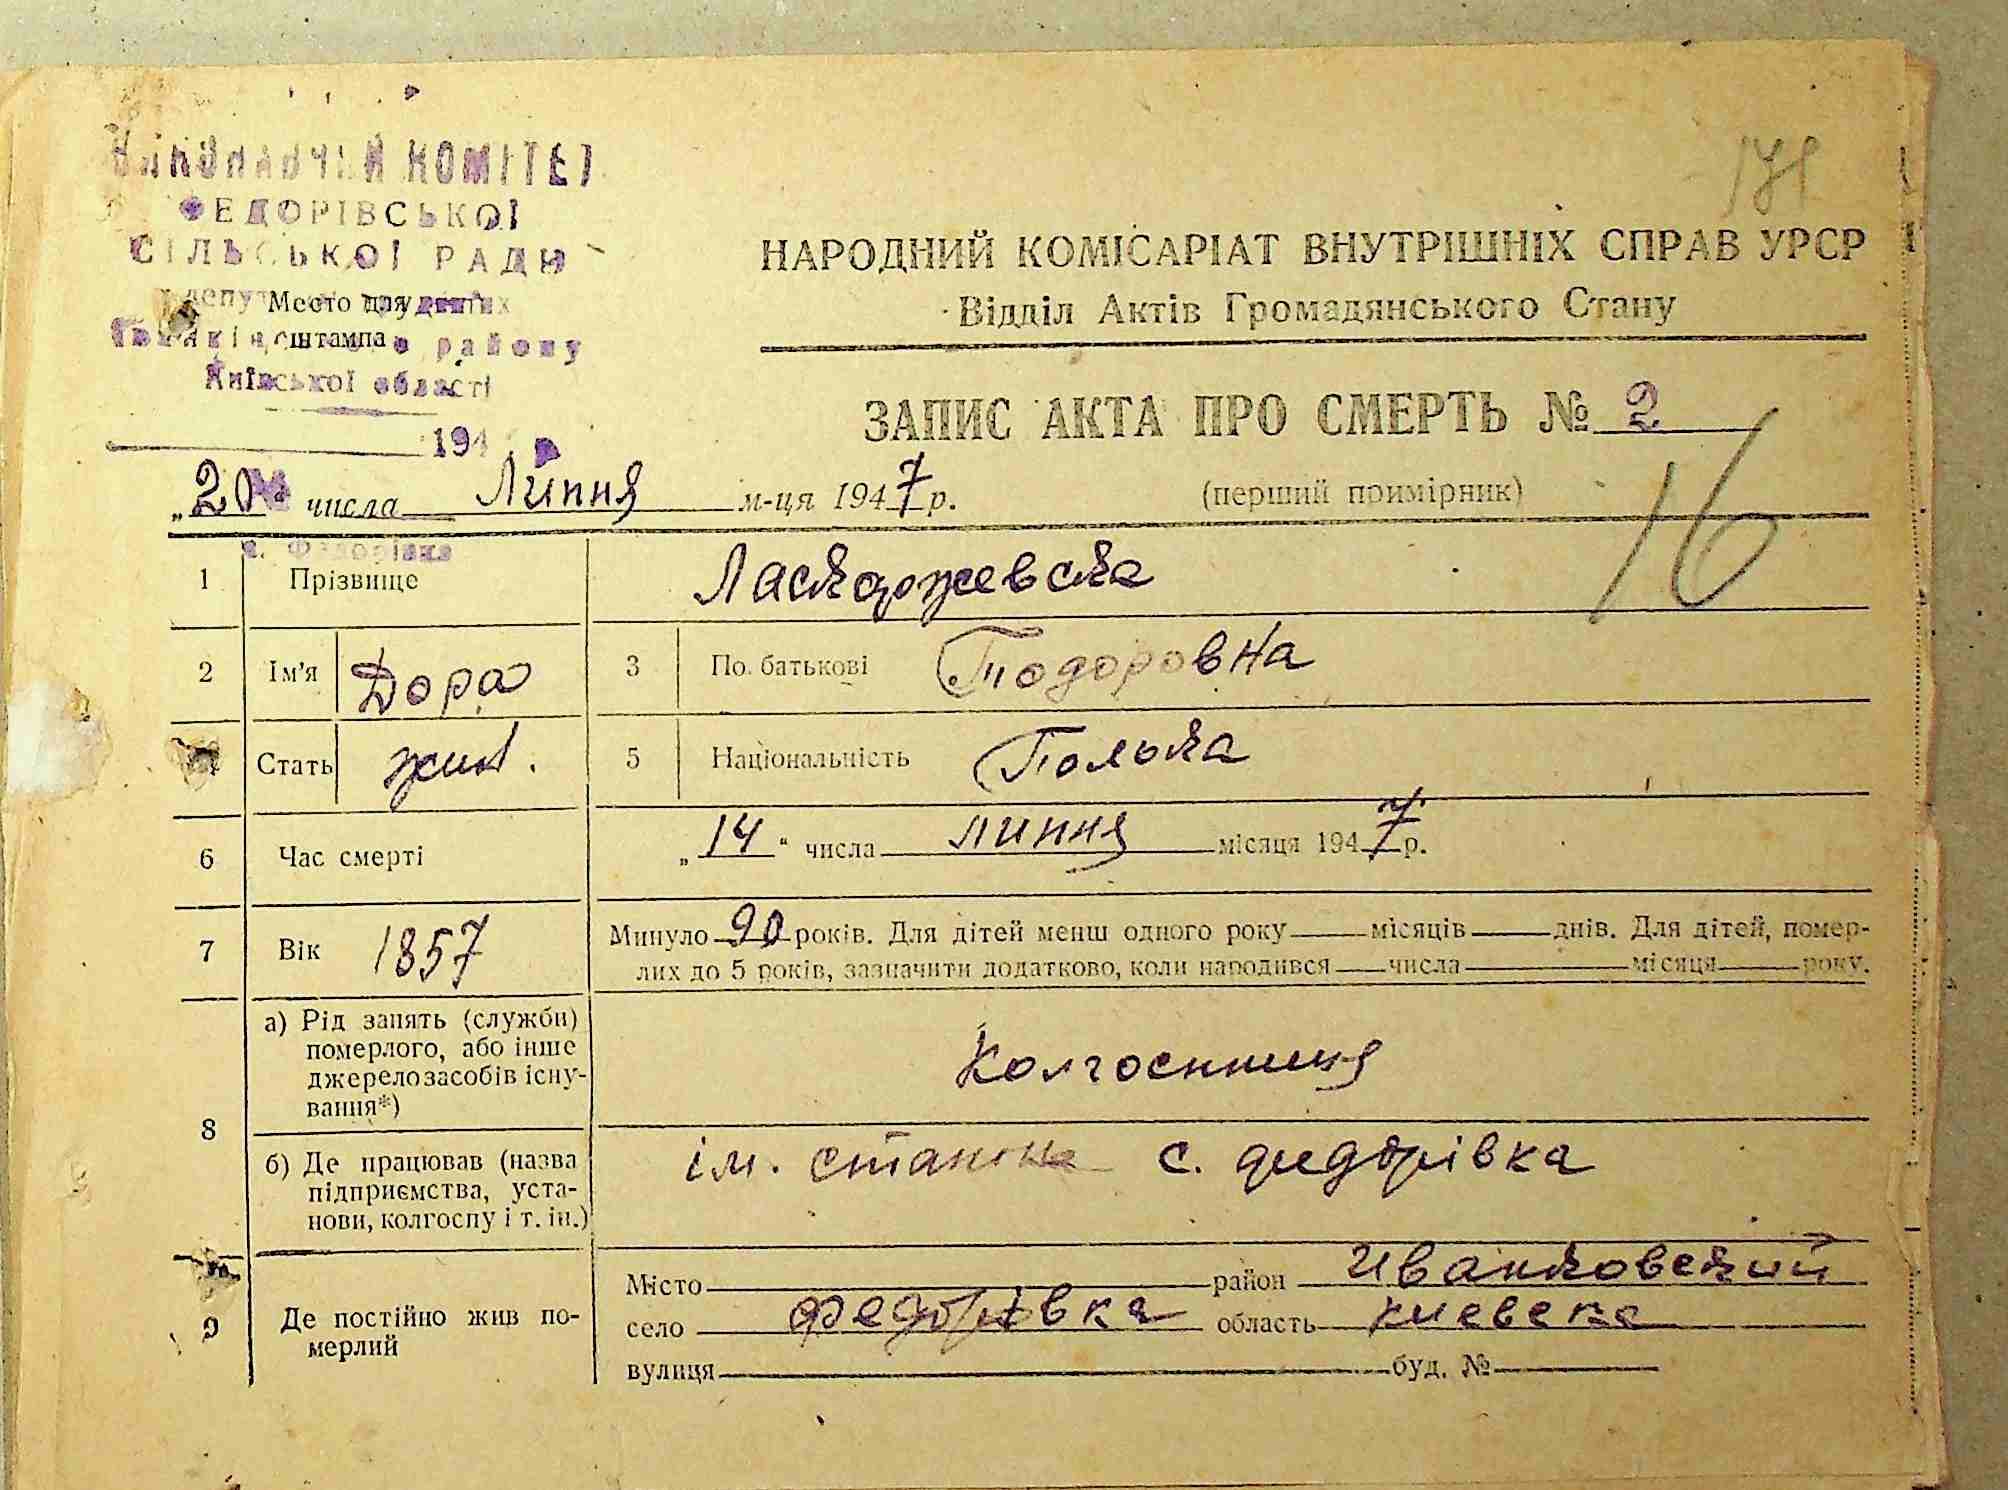 ВИКОНАВЧИЙ КОМІТЕТ
ФЕДОРІВСЬКОЇ
СІЛЬСЬКОЇ РАДИ
Место для
штампа
району
Київської області
194
с. Федорівка
171
НАРОДНИЙ КОМІСАРІАТ ВНУТРІШНІХ СПРАВ УРСР
Відділ Актів Громадянського Стану
ЗАПИС АКТА ПРО СМЕРТЬ № 2
„20“ числа Липня м-ця 1947 р.
(перший примірник)
16
1 Прізвище Ласкаржевска
2 Ім'я Дора 3 По батькові Тодоровна
Стать жин. 5 Національність Полька
6 Час смерті „14“ числа липня місяця 1947 р.
7 Вік 1857 Минуло 90 років. Для дітей менш одного року місяців днів. Для дітей, помер-
лих до 5 років, зазначити додатково, коли народився числа місяця року.
8 а) Рід занять (служби)
померлого, або інше
джерело засобів існу-
вання*)
Колгоспниця
б) Де працював (назва
підприємства, уста-
нови, колгоспу і т. ін.)
ім. с. Федорівка
9 Де постійно жив по-
мерлий
Місто район Иванковский
село Федорівка область Киевска
вулиця буд. №